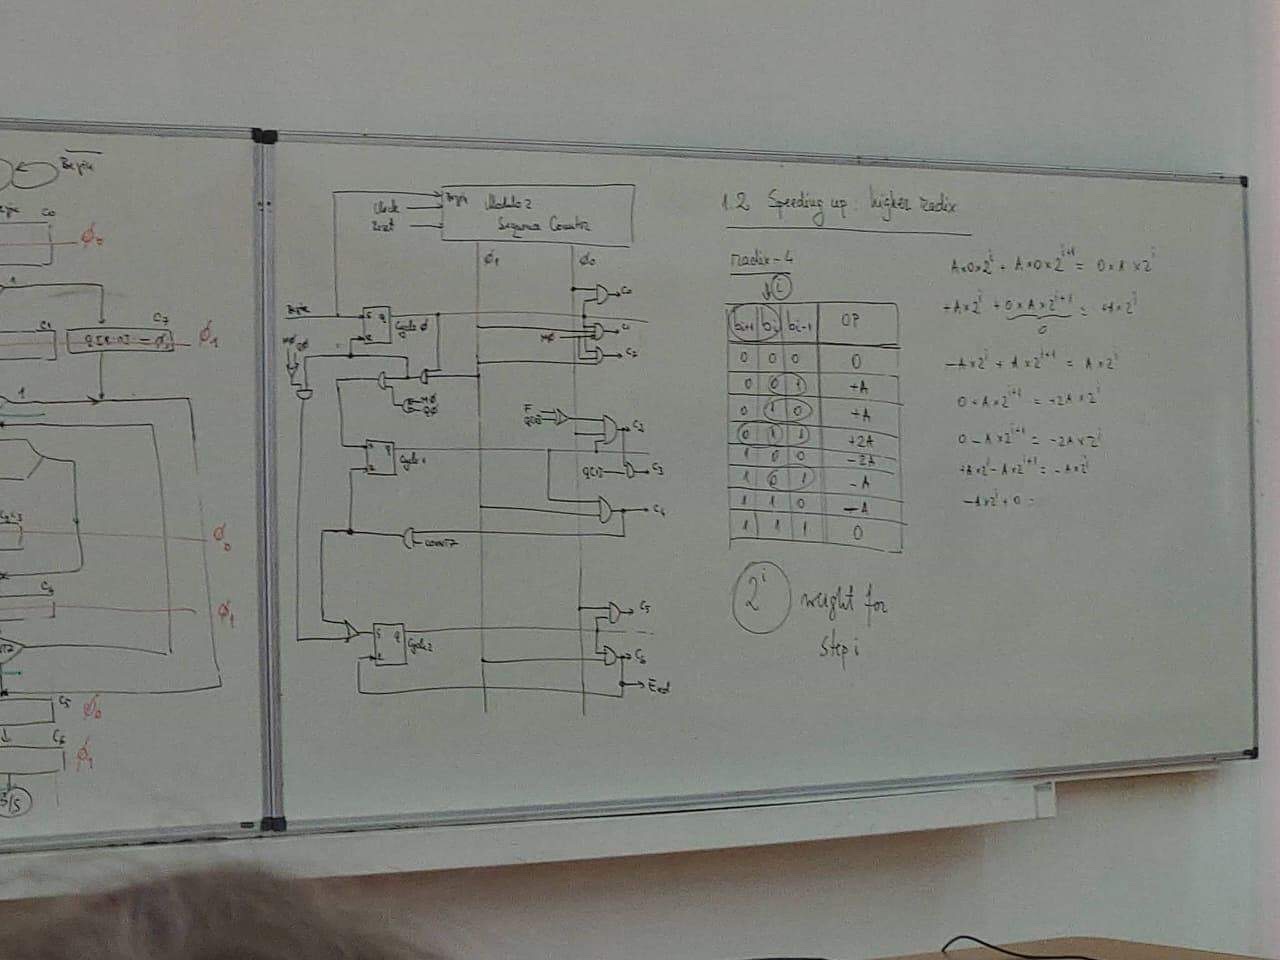 Begin
C0
ϕ0
1
C1
C7
ϕ1
1
C2 C3
ϕ0
C4
ϕ1
C5
ϕ0
C6
ϕ1
Begin
Modulo 2
Clock
Reset
Sequence Counter
ϕ1
ϕ0
C0
Begin
S Q
Cycle 0
R
C2
Q
Cycle 1
C2
Q[1]
C3
C4
COUNT7
C5
S Q
Cycle 2
C6
End
1.2 Speeding up: higher radix
radix-4
i
bi+1 bi bi-1 OP
0 0 0 0
0 0 1 +A
0 1 0 +A
0 1 1 +2A
1 0 0 -2A
1 0 1 -A
1 1 0 -A
1 1 1 0
2^i weight for
step i
A×0×2^i + A×0×2^i+1 = 0×A×2^i
+A×2^i + 0×A×2^i+1 = A×2^i
0
-A×2^i + A×2^i+1 = A×2^i
0+A×2^i+1 = +2A×2^i
0-A×2^i+1 = -2A×2^i
+A×2^i - A×2^i+1 = -A×2^i
-A×2^i + 0 =